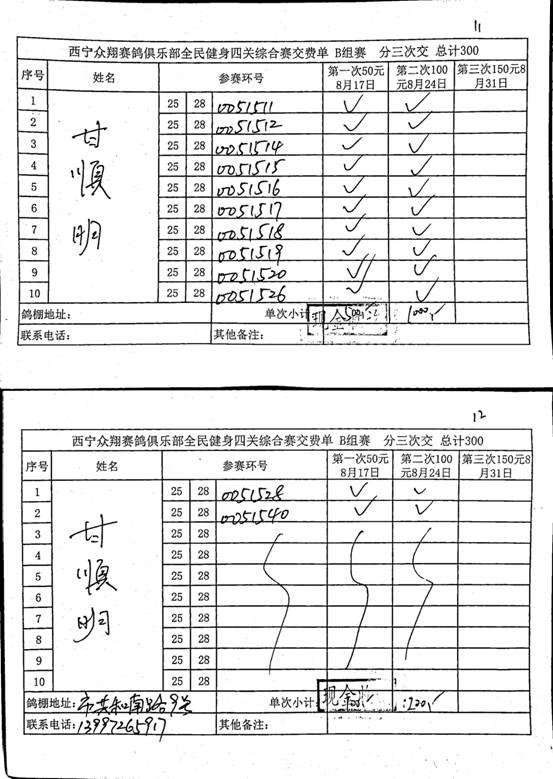 11
西宁众翔赛鸽俱乐部全民健身四关综合赛交费单 B组赛 分三次交 总计300
序号 姓名 参赛环号 第一次50元8月17日 第二次100元8月24日 第三次150元8月31日
甘順明
1 25 28 0051511 ✓ ✓
2 25 28 0051512 ✓ ✓
3 25 28 0051514 ✓ ✓
4 25 28 0051515 ✓ ✓
5 25 28 0051516 ✓ ✓
6 25 28 0051517 ✓ ✓
7 25 28 0051518 ✓ ✓
8 25 28 0051519 ✓ ✓
9 25 28 0051520 ✓ ✓
10 25 28 0051526 ✓ ✓
鸽棚地址: 单次小计 现金 500 1000
联系电话: 其他备注:
12
西宁众翔赛鸽俱乐部全民健身四关综合赛交费单 B组赛 分三次交 总计300
序号 姓名 参赛环号 第一次50元8月17日 第二次100元8月24日 第三次150元8月31日
甘順明
1 25 28 0051528 ✓ ✓
2 25 28 0051540 ✓ ✓
3 25 28
4 25 28
5 25 28
6 25 28
7 25 28
8 25 28
9 25 28
10 25 28
鸽棚地址: 市共和南路9号 单次小计 现金 200
联系电话: 13997265917 其他备注: